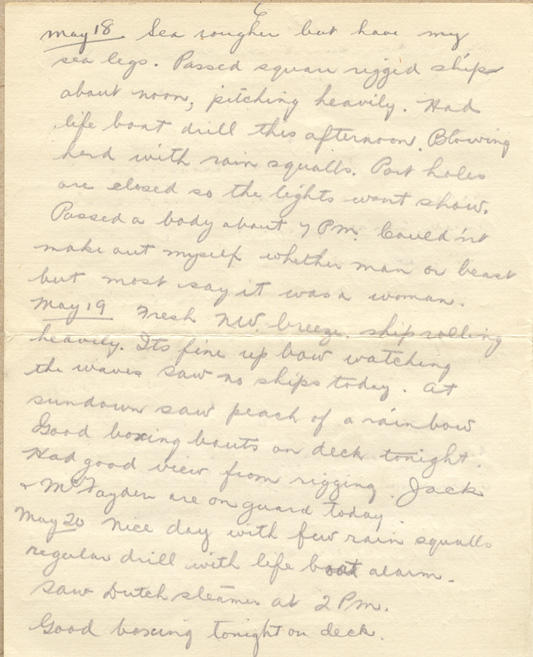 6
May 18 Sea rougher but have my
sea legs. Passed square rigged ship
about noon, pitching heavily. Had
life boat drill this afternoon. Blowing
hard with rain squalls. Port holes
are closed so the lights wont show.
Passed a body about 7 P.M. Could'nt
make out myself whether man or beast
but most say it was a woman.
May 19 Fresh N.W. breeze. ship rolling
heavily. Its fine up bow watching
the waves saw no ships today. At
sundown saw peach of a rainbow
Good boxing bouts on deck tonight.
Had good view from rigging. Jack
& McFayden are on guard today.
May 20 Nice day with few rain squalls
regular drill with life boat alarm.
Saw Dutch steamer at 2 P.M.
Good boxing tonight on deck.